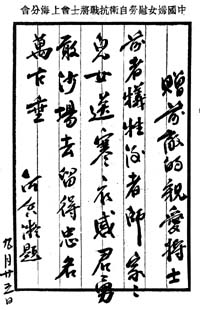 中國婦女慰勞自衛抗戰將士會上海分會
贈前敵的親愛將士
前者犧牲後者師家々
兒女送寒衣感君勇
敢沙場去留得忠名
萬古垂
何香凝題
九月廿五日